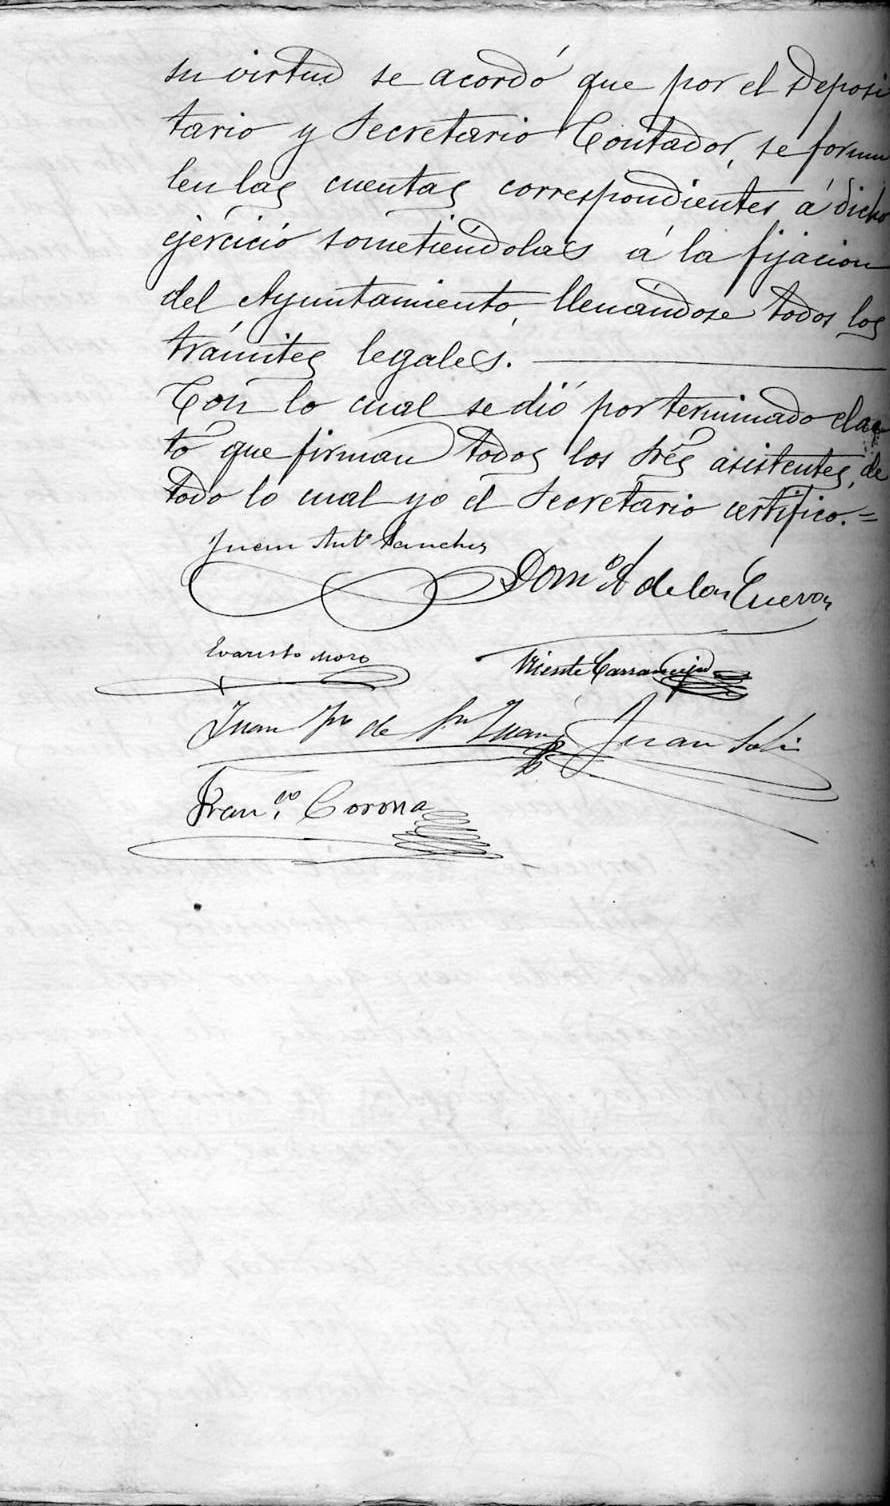 su virtud se acordó que por el Deposi
tario y Secretario Contador, se formu
len las cuentas correspondientes á dicho
ejercicio sometiéndolas á la fijacion
del Ayuntamiento, llenándose todos los
trámites legales.
Con lo cual se dió por terminado el ac
to que firman todos los Srés asistentes, de
todo lo cual yo el Secretario certifico.=
Juan Antº Sanchez
Domº A de las Cuevas
Evaristo Moro
Vicente Carrasquijo
Juan de Sn Juan
Juan Solis
Franco Corona